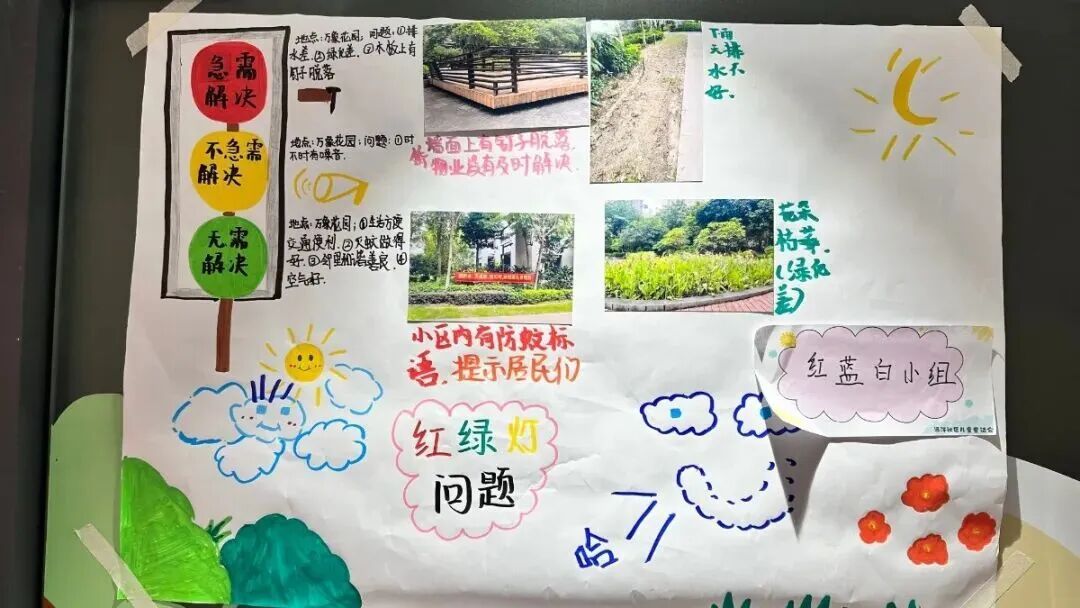 急需
解决
不急需
解决
无需
解决
地点:万象花园,问题:①排
水差.②绿化差.③木板上有
钉子脱落
地点:万象花园;问题:①时
不时有噪音.
地点:万象花园;①生活方便
交通便利.②灭蚊做得
好.③邻里和善善良.④
空气好.
墙面上有钉子脱落,
物业没有及时解决.
下雨
天排
水不
好.
小区内有防蚊标
语,提示居民们
花朵
枯萎.
(绿化
差)
红蓝白小组
红绿灯
问题
哈